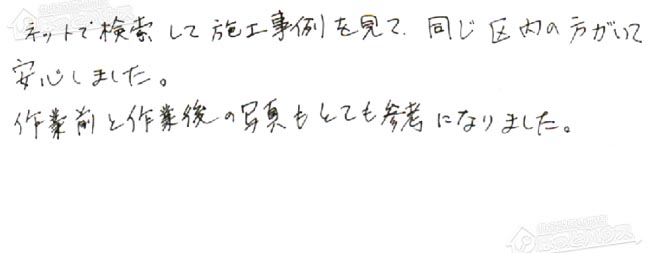 ネットで検索して施工事例を見て、同じ区内の方がいて
安心しました。
作業前と作業後の写真もとても参考になりました。